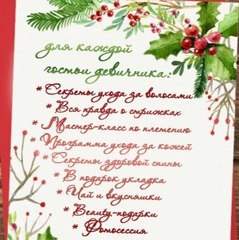 для каждой
гостьи девичника:
* Секреты ухода за волосами
* Вся правда о стрижках
* Мастер-класс по плетению
* Программа ухода за кожей
* Секреты здоровой спины
* В подарок укладка
* Чай и вкусняшки
* Beauty-подарки
* Фотосессия